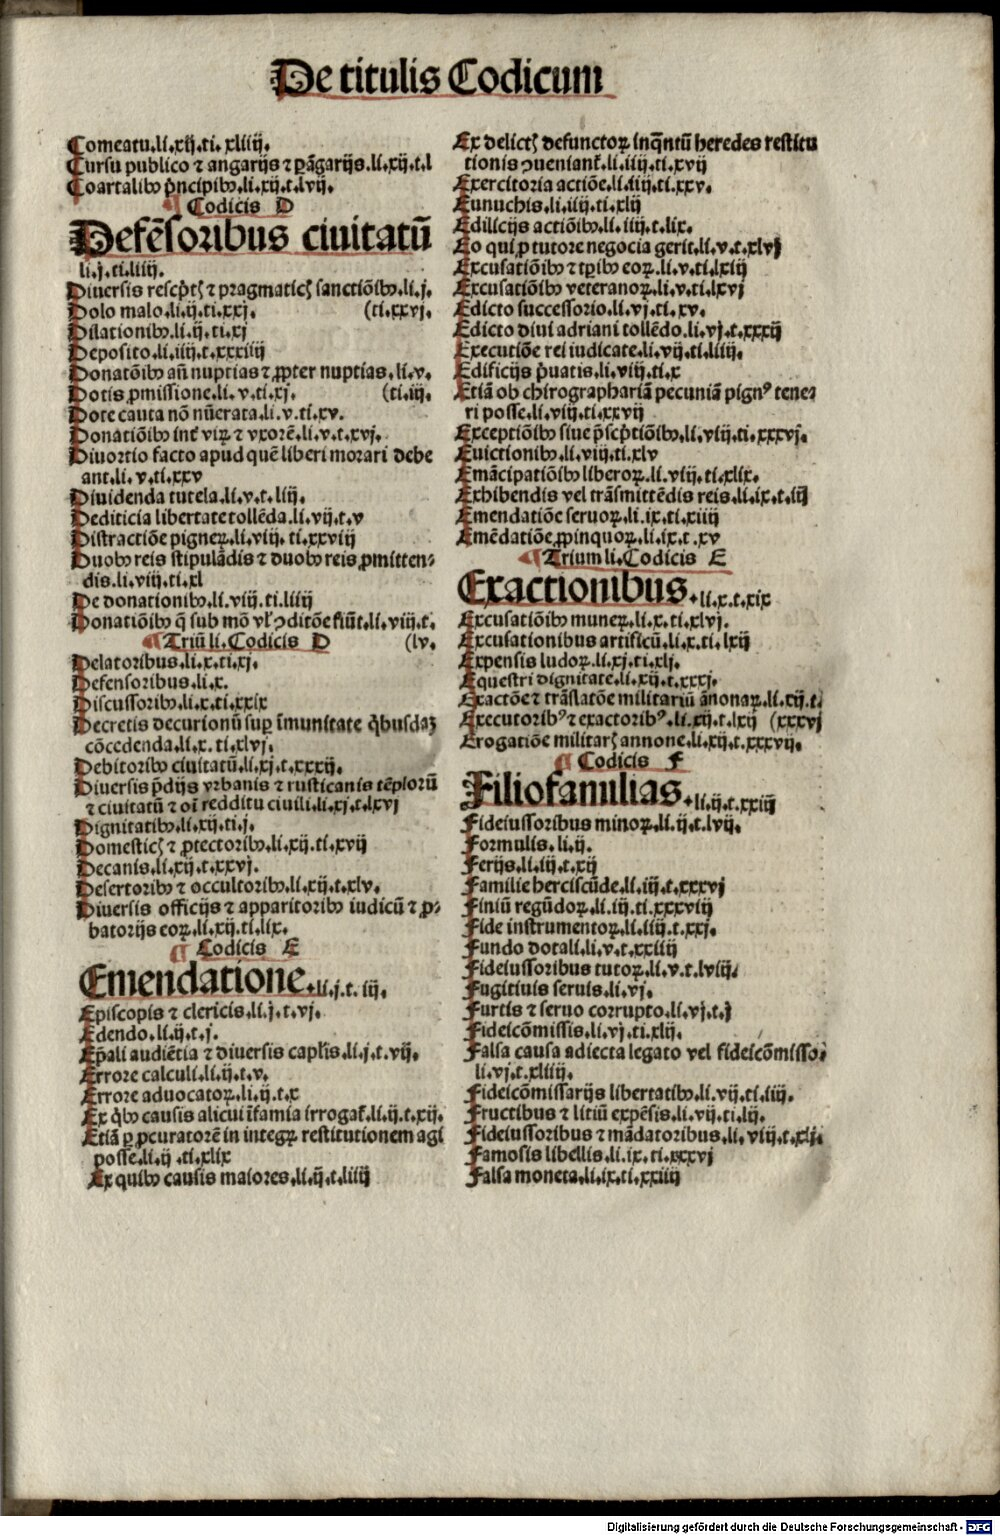 De titulis Codicum
Comeatu.li.xij.ti.xliiij.
Cursu publico ⁊ angarijs ⁊ ꝑãgarijs.li.xij.t.l
Coartalibꝰ p̃ncipibꝰ.li.xij.t.lvij.
¶ Codicis D
Defẽsoribus ciuitatũ
li.j.ti.liiij.
Diuersis rescp̃tꝭ ⁊ pragmaticꝭ sanctiõibꝰ.li.j.
Dolo malo.li.ij.ti.xxj. (ti.xxvj.
Dilationibꝰ.li.ij.ti.xj
Deposito.li.iiij.t.xxxiiij
Donatõibꝰ añ nuptias ⁊ ꝓpter nuptias.li.v.
Dotis ꝓmissione.li.v.ti.xj. (ti.iij.
Dote cauta nõ nũerata.li.v.ti.xv.
Donatiõibꝰ int̃ viꝝ ⁊ vxorẽ.li.v.t.xvj.
Diuortio facto apud quẽ liberi morari debe
ant.li.v.ti.xxv
Diuidenda tutela.li.v.t.lij.
Dediticia libertate tollẽda.li.vij.t.v
Distractiõe pigneꝝ.li.viij.ti.xxviij
Duobꝰ reis stipulãdis ⁊ duobꝰ reis ꝓmitten⸗
dis.li.viij.ti.xl
De donationibꝰ.li.viij.ti.liiij
Donatiõibꝰ q̃ sub mõ vl' ꝯditõe fiũt.li.viij.t.
¶ Triũ li.Codicis D (lv.
Delatoribus.li.x.ti.xj.
Defensoribus.li.x.
Discussoribꝰ.li.x.ti.xxix
Decretis decurionũ suꝑ ĩmunitate q̃busdaꝫ
cõcedenda.li.x.ti.xlvj.
Debitoribꝰ ciuitatũ.li.xj.t.xxxij.
Diuersis p̃dijs vrbanis ⁊ rusticanis tẽplorũ
⁊ ciuitatũ ⁊ oĩ redditu ciuili.li.xj.t.lxvj
Dignitatibꝰ.li.xij.ti.j.
Domesticꝭ ⁊ ꝓtectoribꝰ.li.xij.ti.xvij
Decanis.li.xij.t.xxvj.
Desertoribꝰ ⁊ occultoribꝰ.li.xij.t.xlv.
Diuersis officijs ⁊ apparitoribꝰ iudicũ ⁊ ꝓ⸗
batorijs eoꝝ.li.xij.ti.lix.
¶ Codicis E
Emendatione.li.j.t.iij.
Episcopis ⁊ clericis.li.j.t.vj.
Edendo.li.ij.t.j.
Ep̃ali audiẽtia ⁊ diuersis capl'is.li.j.t.vij.
Errore calculi.li.ij.t.v.
Errore aduocatoꝝ.li.ij.t.x
Ex q̃bꝰ causis alicui ĩfamia irrogat̃.li.ij.t.xij.
Etiã ꝑ ꝓcuratorẽ in integꝝ restitutionem agi
posse.li.ij.ti.xlix
Ex quibꝰ causis maiores.li.ij.t.liiij
Ex delictꝭ defunctoꝝ inq̃ntũ heredes restitu
tionis ꝯueniant̃.li.iiij.ti.xvij
Exercitoria actiõe.li.iiij.ti.xxv.
Eunuchis.li.iiij.ti.xlij
Edilicijs actiõibꝰ.li.iiij.t.lix.
Eo qui ꝓ tutore negocia gerit.li.v.t.xlvj
Excusatiõibꝰ ⁊ tp̃ibꝰ eoꝝ.li.v.ti.lxij
Excusatiõibꝰ veteranoꝝ.li.v.ti.lxvj
Edicto successorio.li.vj.ti.xv.
Edicto diui adriani tollẽdo.li.vj.t.xxxij
Executiõe rei iudicate.li.vij.ti.liiij.
Edificijs p̃uatis.li.viij.ti.x
Etiã ob chirographariã pecuniã pignꝰ tene⸗
ri posse.li.viij.ti.xxvij
Exceptiõibꝰ siue p̃scp̃tiõibꝰ.li.viij.ti.xxxvj.
Euictionibꝰ.li.viij.ti.xlv
Emãcipatiõibꝰ liberoꝝ.li.viij.ti.xlix.
Exhibendis vel trãsmittẽdis reis.li.ix.t.iij
Emendatiõe seruoꝝ.li.ix.ti.xiiij
Emẽdatiõe ꝓpinquoꝝ.li.ix.t.xv
¶ Trium li.Codicis E
Exactionibus.li.x.t.xix
Excusatiõibꝰ muneꝝ.li.x.ti.xlvj.
Excusationibus artificũ.li.x.ti.lxij
Expensis ludoꝝ.li.xj.ti.xlj.
Equestri dignitate.li.xij.t.xxxj.
Exactõe ⁊ trãslatõe militariũ ãnonaꝝ.li.xij.t.
Executoribꝰ ⁊ exactoribꝰ.li.xij.t.lxij (xxxvj
Erogatiõe militarꝭ annone.li.xij.t.xxxvij.
¶ Codicis F
Filiofamilias.li.ij.t.xxiij
Fideiussoribus minoꝝ.li.ij.t.lvij.
Formulis.li.ij.
Ferijs.li.iij.t.xij
Familie herciscũde.li.iij.t.xxxvj
Finiũ regũdoꝝ.li.iij.ti.xxxviij
Fide instrumentoꝝ.li.iiij.t.xxj.
Fundo dotali.li.v.t.xxiiij
Fideiussoribus tutoꝝ.li.v.t.lviij.
Fugitiuis seruis.li.vj.
Furtis ⁊ seruo corrupto.li.vj.t.j
Fideicõmissis.li.vj.ti.xlij.
Falsa causa adiecta legato vel fideicõmisso.
li.vj.t.xliiij.
Fideicõmissarijs libertatibꝰ.li.vij.ti.iiij.
Fructibus ⁊ litiũ expẽsis.li.vij.ti.lij.
Fideiussoribus ⁊ mãdatoribus.li.viij.t.xlj.
Famosis libellis.li.ix.ti.xxxvj
Falsa moneta.li.ix.ti.xxiiij
Digitalisierung gefördert durch die Deutsche Forschungsgemeinschaft - DFG